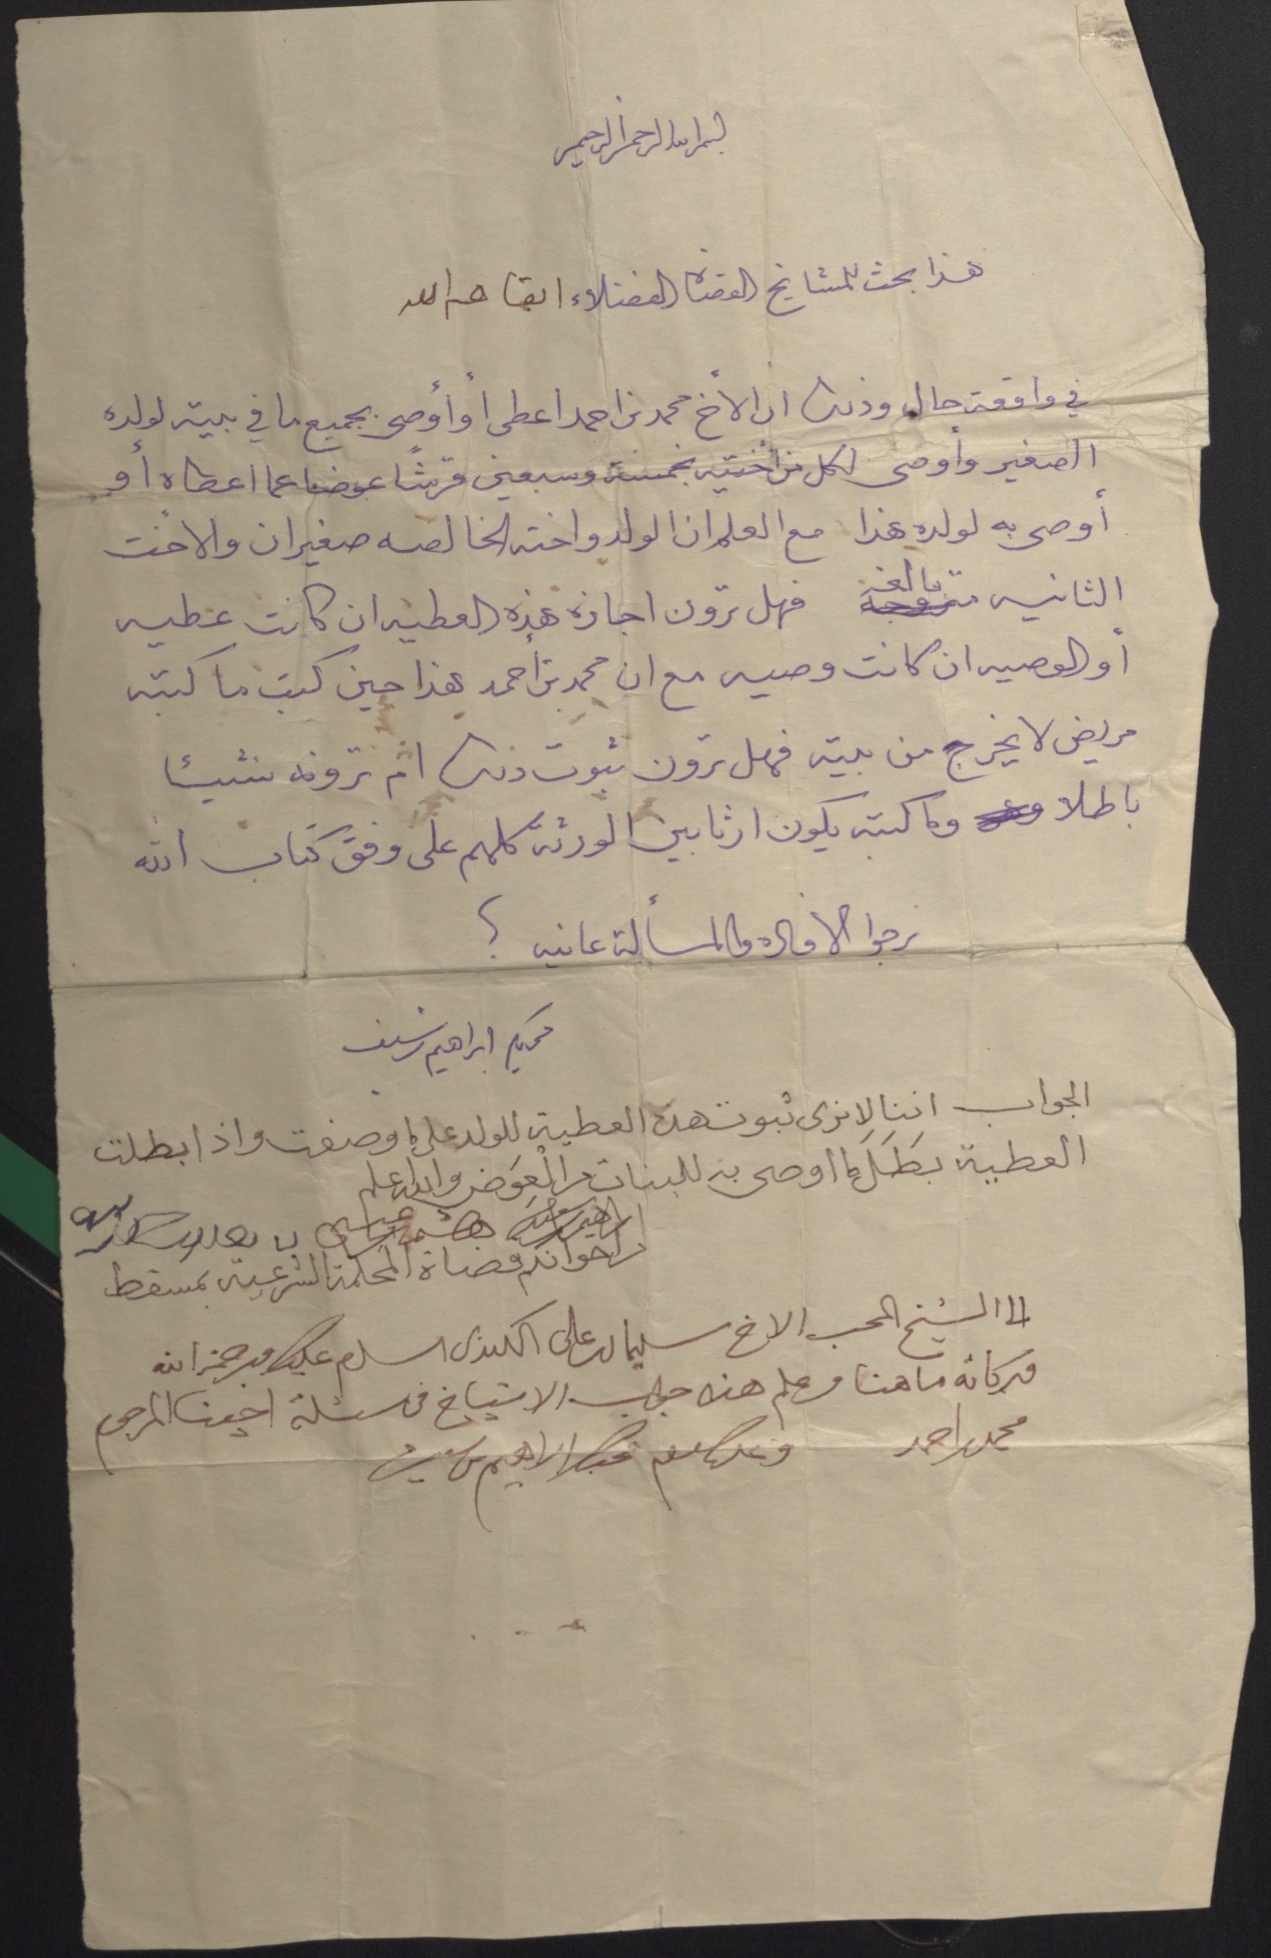 بسم الله الرحمن الرحيم
هذا بحث للمشايخ القضاة الفضلاء ابقاهم الله
في واقعة حال وذلك ان الأخ محمد بن احمد اعطى أو أوصى بجميع ما في بيته لولده
الصغير وأوصى لكل من اختيه بخمسة وسبعين قرشًا عوضا عما اعطاه أو
أوصى به لولده هذا مع العلم ان الولد واخته الخالصه صغيران والاخت
الثانيه بالغه فهل ترون اجازة هذه العطيه ان كانت عطيه
أو الوصيه ان كانت وصيه مع ان محمد بن أحمد هذا حين كتب ما كتبه
مريض لا يخرج من بيته فهل ترون ثبوت ذلك ام ترونه شيئا
باطلا وما كتبه يكون ارثا بين الورثة كلهم على وفق كتاب الله
نرجوا الافاده والمسألة عانيه ؟
محبكم ابراهيم سيف
الجواب اننا لا نرى ثبوت هذه العطية للولد على ما وصفت واذا بطلت
العطية بَطَلَ ما اوصى به للبنات من العِوَض والله اعلم
ابراهيم سعيد هاشم عيسى
من اخوانكم قضاة المحكمة الشرعية بمسقط
الى الشيخ المحب الاخ سليمان بن علي الكندي السلام عليكم ورحمة الله
وبركاته ما هنا من علم هذه جواب الاشياخ في مسئلة اخينا المرحوم
محمد بن احمد وعليك السلام محبك ابراهيم بن سيف